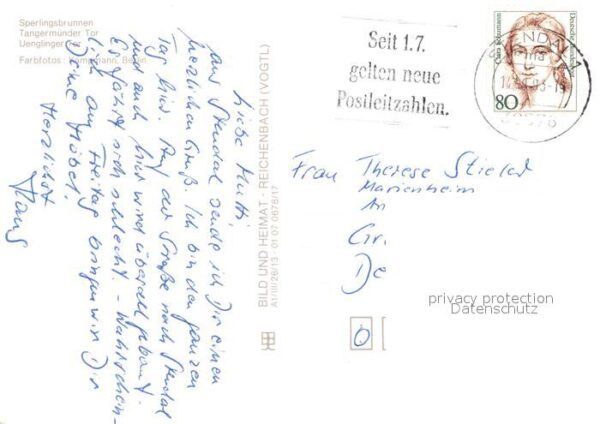 Sperlingsbrunnen
Tangermünder Tor
Uenglinger Tor
Farbfotos: Kempmann, Berlin
Liebe Mutti,
aus Stendal sende ich Dir einen
herzlichen Gruß. Ich bin den ganzen
Tag hier. Auf der Straße nach Stendal
und auch hier wird überall gebaut.
Es fährt sich schlecht. - Wahrschein-
lich am Freitag bringen wir Dir
Deine Möbel.
Herzlichst
Hans
BILD UND HEIMAT · REICHENBACH (VOGTL)
A1/III/26/13 · 01 07 0678/17
Seit 1.7.
gelten neue
Postleitzahlen.
STENDAL 1
Clara Schumann
Deutsche Bundespost
80
Frau Therese Stieler
Marienheim
Am
Gr.
De
O
privacy protection
Datenschutz